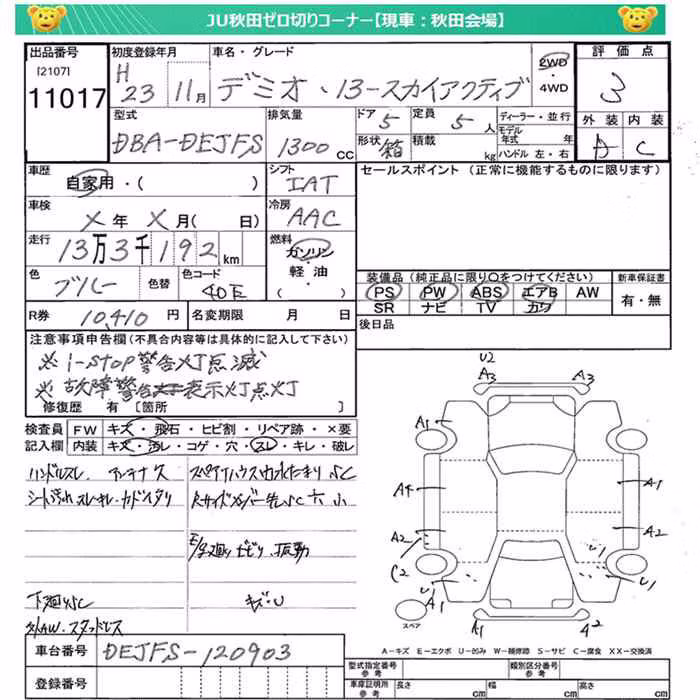 JU秋田ゼロ切りコーナー【現車：秋田会場】
出品番号 初度登録年月 車名・グレード 評価点
[2107]
11017 H 23 11月 デミオ・13-スカイアクティブ 2WD・4WD 3
外装 内装
A C
型式 排気量 ドア 定員 ディーラー・並行
DBA-DEJFS 1300CC 5 5人 モデル年式 年
形状 積載 kg ハンドル 左・右
箱
車歴 シフト セールスポイント (正常に機能するものに限ります)
自家用・( ) IAT
車検 冷房
X年 X月( 日) AAC
走行 燃料
13万3千192km ガソリン・軽油・( )
色 色替 色コード 装備品(純正品に限り○をつけてください) 新車保証書
ブルー 40E PS PW ABS エアB AW 有・無
SR ナビ TV カワ
R券 10,410円 名変期限 月 日 後日品
注意事項申告欄(不具合内容等は具体的に記入して下さい)
※i-stop警告灯点滅
※故障警告表示灯点灯
修復歴 有[箇所 ]
検査員記入欄 FW キズ・飛石・ヒビ割・リペア跡・×要
内装 キズ・汚レ・コゲ・穴・スレ・キレ・破レ
ハンドルスレ アンテナ欠 スペアハウス内水たまり SC
シート汚れ スレ キレ
下廻りSC キズ・U
外AW・スタッドレス
U2
A3 A3
A1
A4 A1
A2 A2
C2 U1 U1
A1 U1
スペア
A1 A2
A－キズ E－エクボ U－凹み W－補修跡 S－サビ C－腐食 XX－交換済
車台番号 DEJFS-120903 型式指定番号 参考 類別区分番号 参考
登録番号 車庫証明所 参考 長さ cm 幅 cm 高さ cm